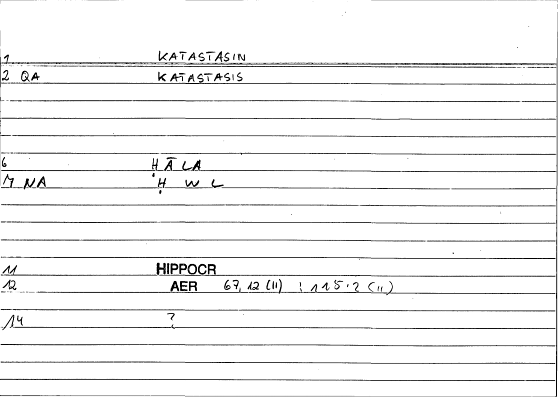 1 KATASTASIN
2 QA KATASTASIS
6 ḤĀLA
M NA Ḥ W L
11 HIPPOCR
12 AER 67,12 (11) : 115.2 (11)
14 ?